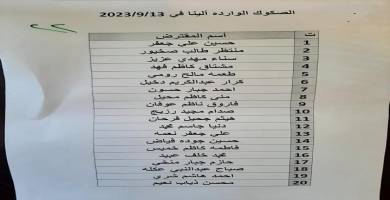 الصكوك الوارده ألينا في 2023/9/13
ت اسم المقترض
1 حسين علي جعفر
2 منتظر طالب صخيور
3 سناء مهدي عزيز
4 مشتاق كاظم فهد
5 طعمه مالح رومي
6 كرار عبدالكريم دخيل
7 احمد جبار حسون
8 منى كاظم محيل
9 فاروق ناظم عوفان
10 صدام مجيد رزيج
11 هيثم جميل فرحان
12 دنيا جاسم محمد
13 علي جعفر نعمه
14 حسين جوده فياض
15 فاطمه كاظم خميس
16 محمد خلف عبيد
17 حازم جبار منشي
18 صباح عبدالنبي عكله
19 احمد هاشم شري
20 محسن ذياب نعيم